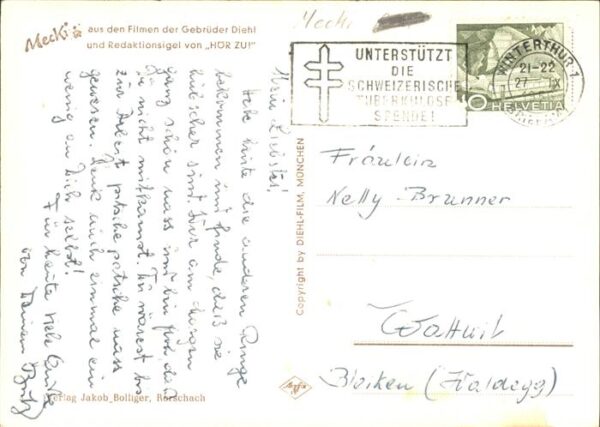 Mecki
aus den Filmen der Gebrüder Diehl
und Redaktionsigel von „HÖR ZU!"
Mecki
UNTERSTÜTZT
DIE
SCHWEIZERISCHE
TUBERKULOSE
SPENDE!
WINTERTHUR 1
21-22
27. IX
10 HELVETIA
Mein Liebstes!
Habe heute die anderen Ringe
bekommen und finde, daß sie
hübscher sind. War am Morgen
ganz schön nass und bin froh, dass
Du nicht mitkamst. Du wärest
zur Arbeit patsche patsche nass
gewesen. Denk auch einmal ein
wenig an Dich selbst!
Für heute viele Grüsse
von Deinem Fritz
Copyright by DIEHL-FILM, MÜNCHEN
Fräulein
Nelly Brunner
Wattwil
Bleiken (Haldegg)
Verlag Jakob Bolliger, Rorschach